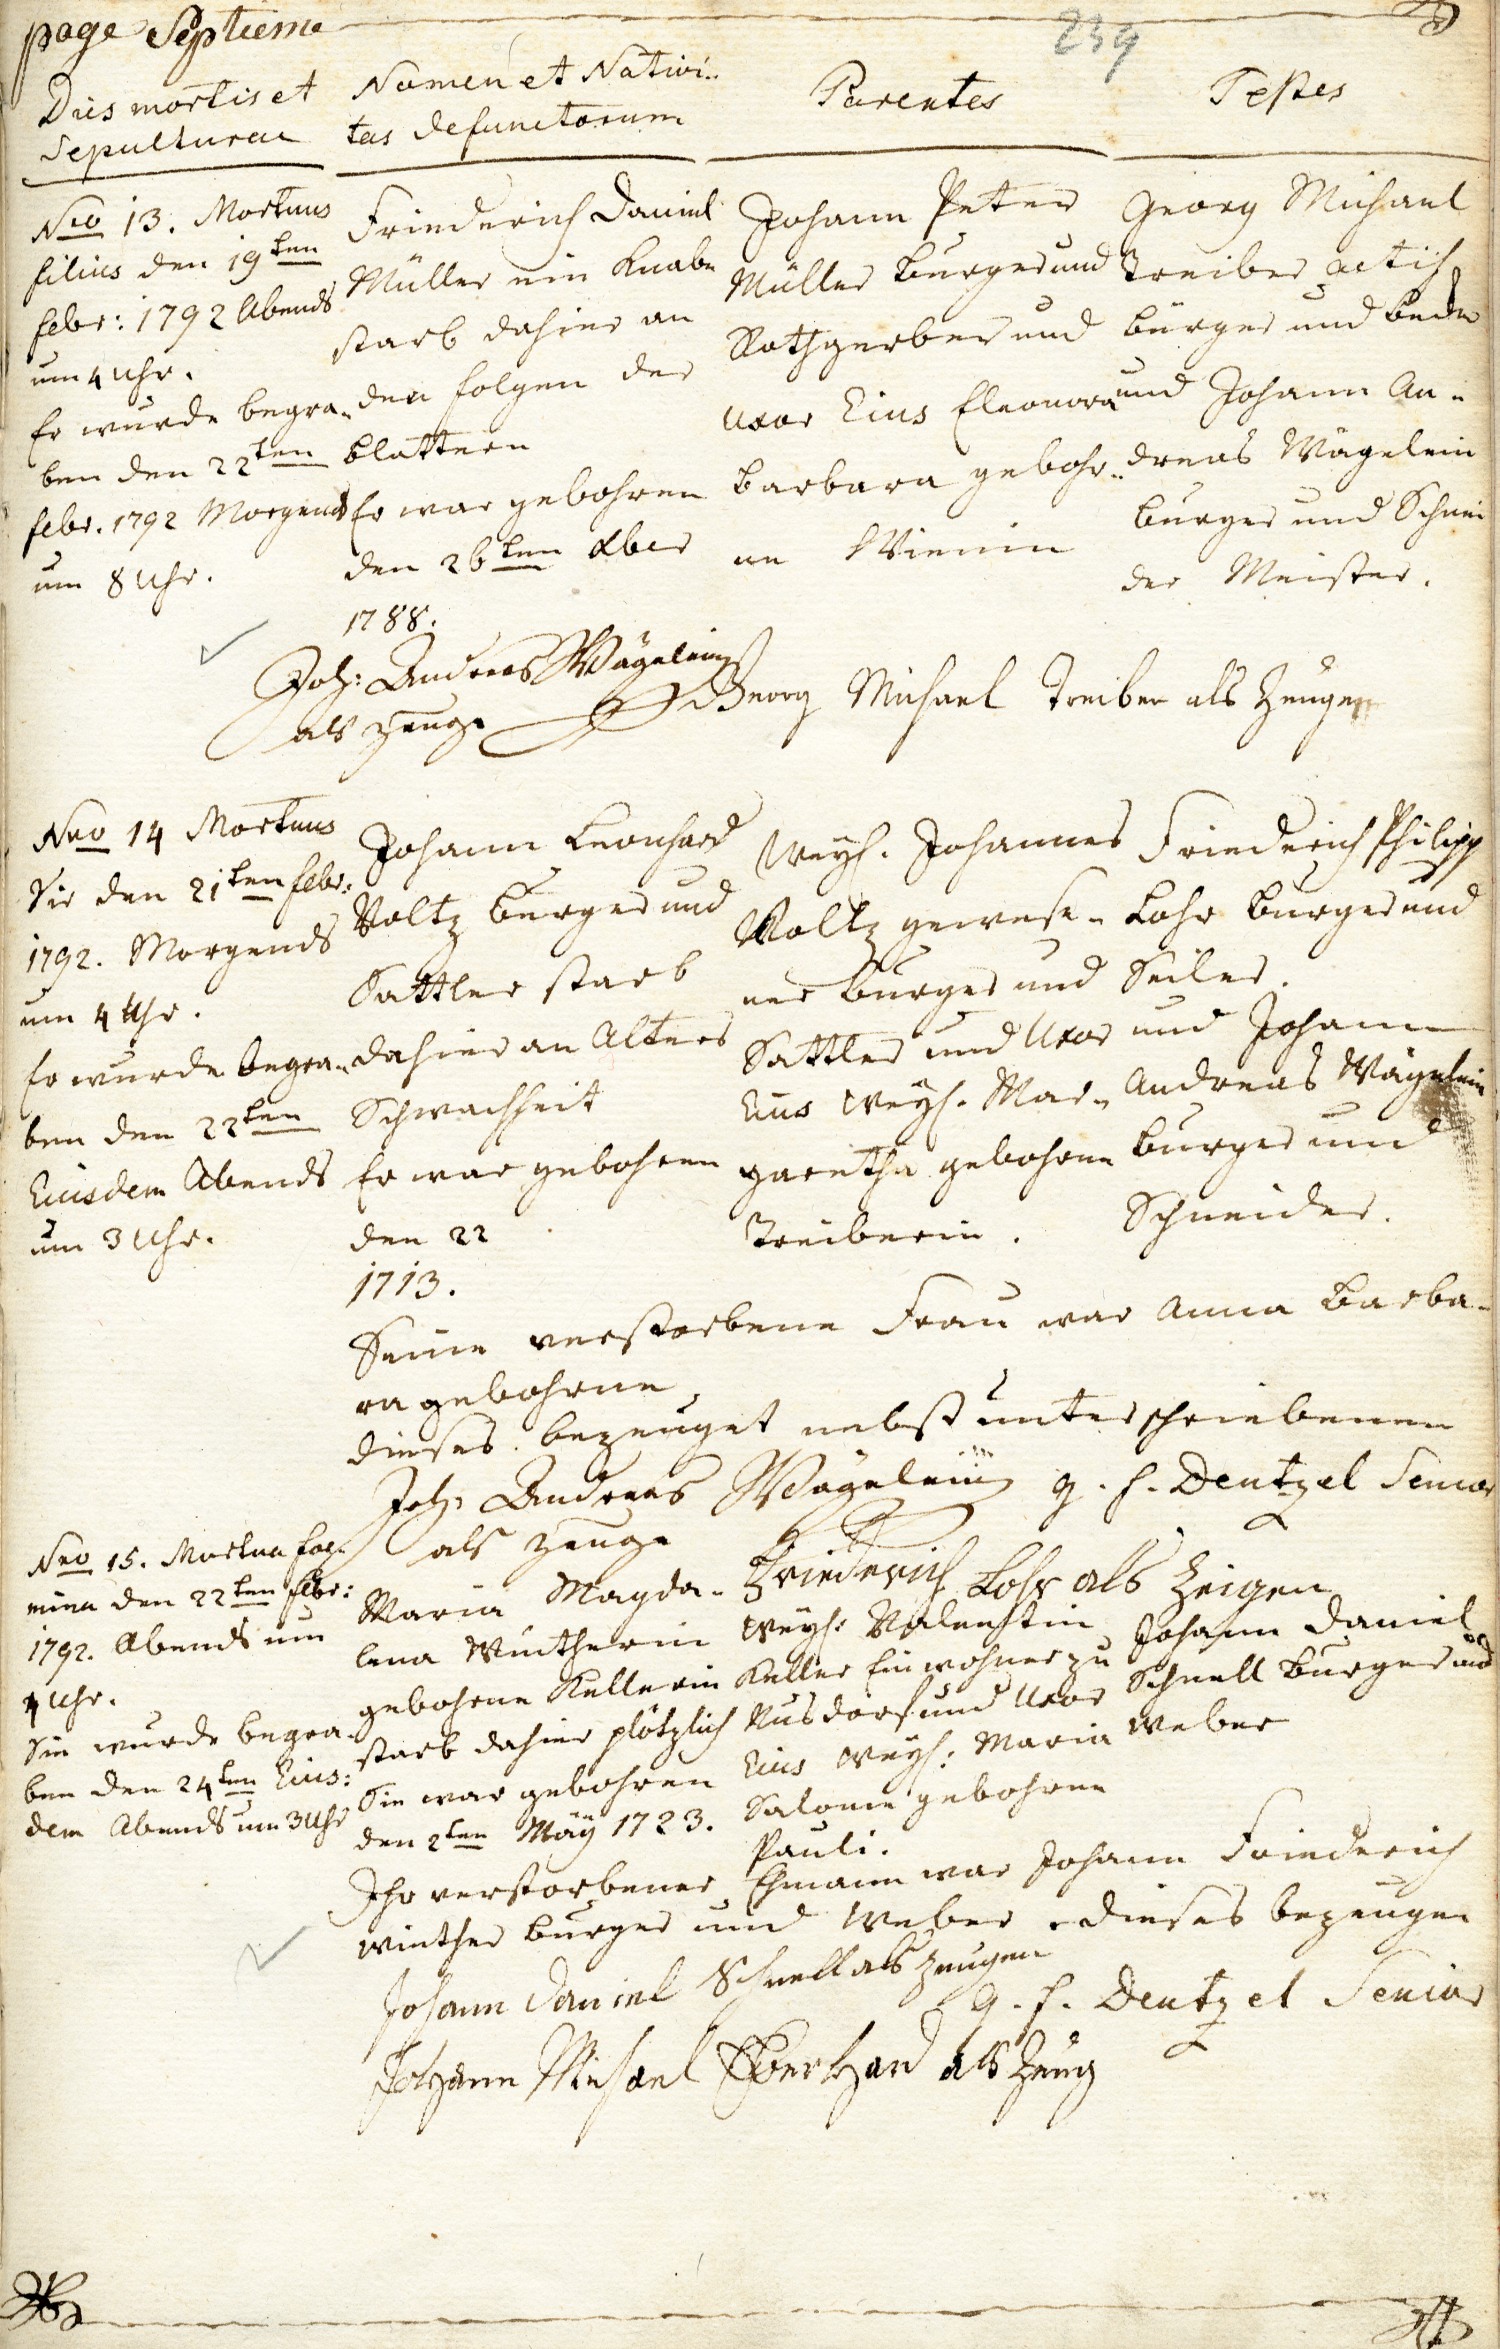 page Septieme
239
Dies mortis et
Sepulturae
Nomen et Nativi-
tas defunctorum
Parentes
Testes
Nro 13. Mortuus
filius den 19ten
febr: 1792 Abends
um 4 Uhr.
Er wurde begra-
ben den 22ten
febr. 1792 Morgends
um 8 Uhr.
Friederich Daniel
Müller ein Knabe
starb dahier an
den folgen der
blattern
Er war gebohren
den 26ten Xber
1788.
Johann Peter
Müller burger und
Rothgerber und
Uxor Eius Eleonora
barbara gebohr-
ne Wienin
Georg Michael
Treiber actif
bürger und beder
und Johann An-
dreas Wägelein
burger und Schnei
der Meister.
Joh: Andreas Wägelein
als zeuge
Georg Michael Treiber als Zeugen
Nro 14 Mortuus
Vir den 21ten febr:
1792. Morgends
um 4 Uhr.
Er wurde begra-
ben den 22ten
Eiusdem Abends
um 3 Uhr.
Johann Leonhard
Voltz burger und
Sattler starb
dahier an Alters
Schwachheit
Er war gebohren
den 22
1713.
Weyh. Johannes
Voltz gewese-
ner burger und
Sattler und Uxor
Eius Weyh. Mar-
garetha gebohrne
Treiberin.
Friederich Philipp
Lohr burger und
Seiler.
und Johann
Andreas Wägelein
burger und
Schneider.
Seine verstorbene Frau war Anna Barba-
ra gebohrne
dieses bezeuget nebst unterschriebenen
Joh: Andreas Wägelein g. f. Deutzel Senior
als zeuge
Friederich Lohr als Zeigen
Nro 15. Mortua foe-
mina den 22ten febr:
1792. Abends um
4 Uhr.
Sie wurde begra-
ben den 24ten Eius:
dem Abends um 3 Uhr
Maria Magda-
lena Wintherin
gebohrne Kellerin
starb dahier plötzlich
Sie war gebohren
den 2ten Mäÿ 1723.
Weyh: Valentin
Keller Einwohner zu
Nusdorf und Uxor
Eius Weyh: Maria
Salome gebohrne
Pauli.
Johann Daniel
Schnell burger und
Weber
Ihr verstorbener Ehmann war Johann Friederich
Winther burger und Weber dieses bezeugen
Johann Daniel Schnell als zeugen
g. f. Deutzel Senior
Johann Michael Eberhard als Zeug